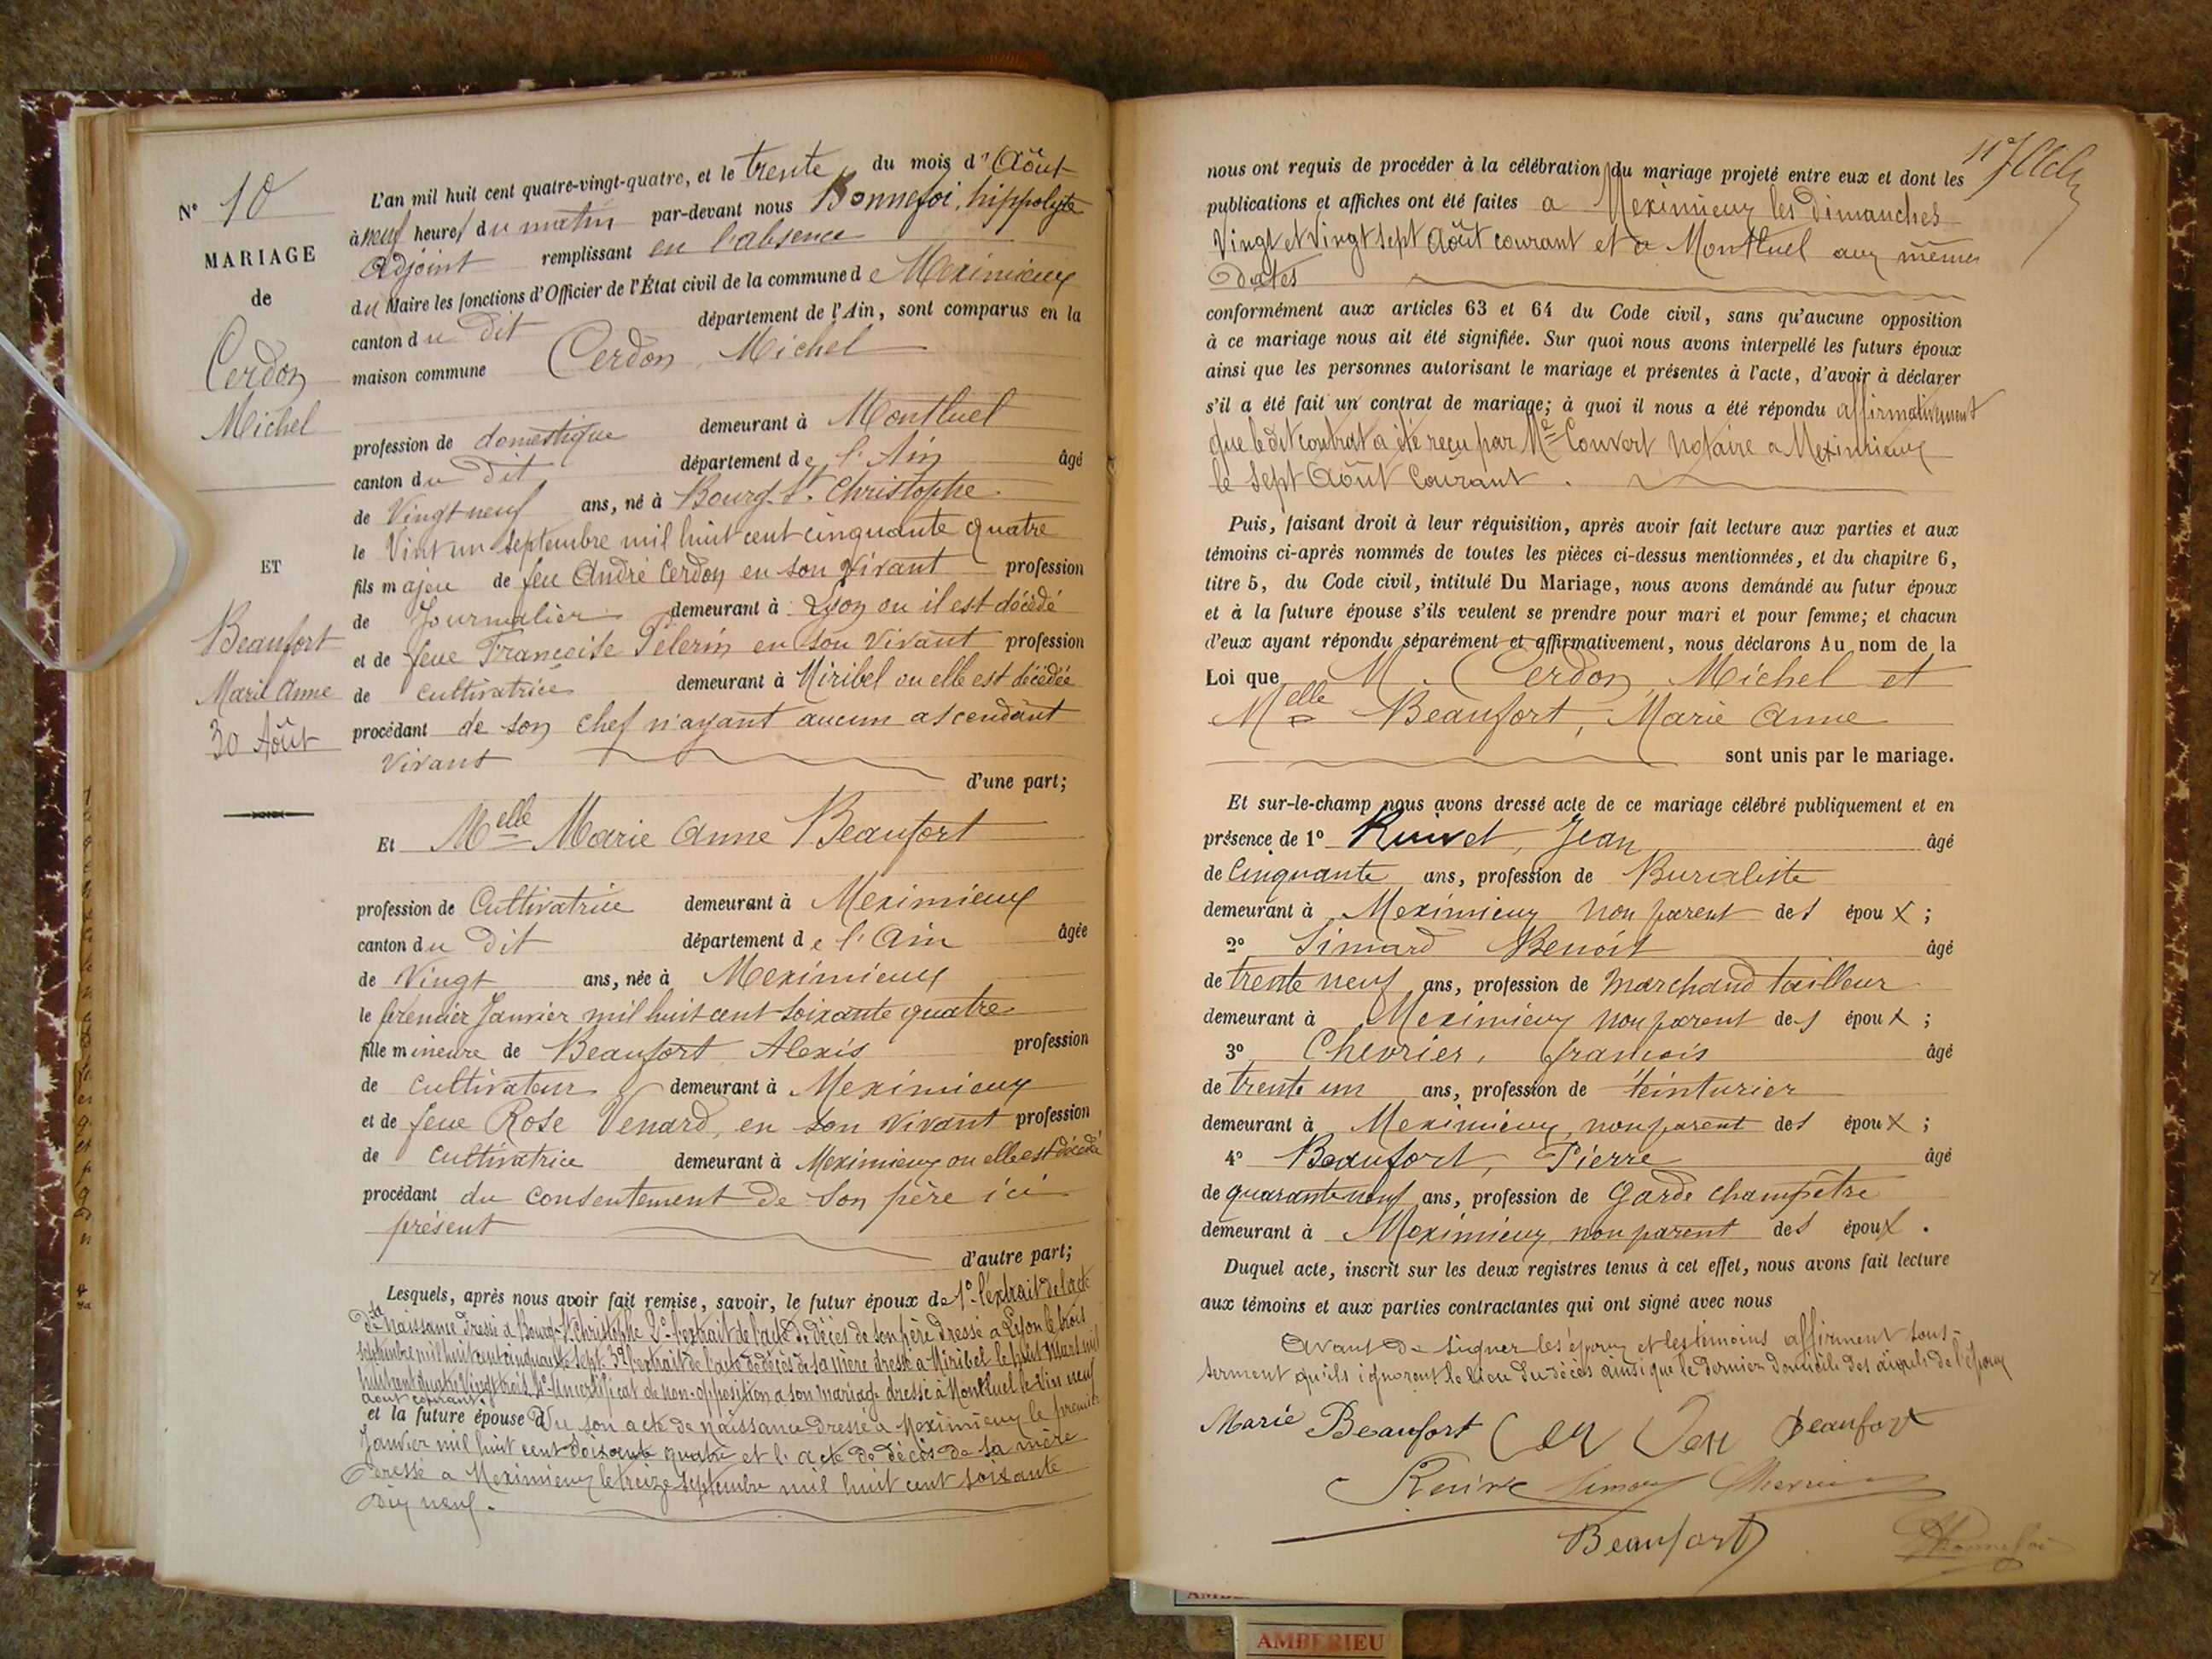 N° 10
MARIAGE
de
Cerdon
Michel
ET
Beaufort
Marie Anne
30 Août
L'an mil huit cent quatre-vingt-quatre, et le trente du mois d' Août
à neuf heures du matin par-devant nous Bonnefoi, hippolyte
Adjoint remplissant en l'absence
du Maire les fonctions d'Officier de l'État civil de la commune de Meximieux
canton du dit département de l'Ain, sont comparus en la
maison commune Cerdon, Michel
profession de domestique demeurant à Montluel
canton du dit département de l'Ain âgé
de Vingt neuf ans, né à Bourg St. Christophe
le Vint un septembre mil huit cent cinquante quatre
fils majeu de feu André Cerdon en son vivant profession
de Journalier demeurant à Lyon ou il est décédé
et de feue Francoise Pelerin en son vivant profession
de cultivatrice demeurant à Miribel ou elle est décédée
procédant de son chef n'ayant aucun ascendant
vivant
d'une part;
Et Melle Marie Anne Beaufort
profession de Cultivatrice demeurant à Meximieux
canton du dit département de l'Ain âgée
de Vingt ans, née à Meximieux
le premier Janvier mil huit cent soixante quatre
fille mineure de Beaufort Alexis profession
de cultivateur demeurant à Meximieux
et de feue Rose Venard, en son vivant profession
de cultivatrice demeurant à Meximieux ou elle est décédé
procédant du consentement de son père ici
présent
d'autre part;
Lesquels, après nous avoir fait remise, savoir, le futur époux de 1° l'extrait de l'acte
de sa naissance dressé à Bourg-St Christophe 2° l'extrait de l'acte de décès de son père dressé a Lyon le trois
septembre mil huit cent cinquante sept. 3° l'extrait de l'acte de décès de sa mère dressé a Miribel le huit Mars mil
huit cent quatre vingt trois, 4° Un certificat de non-opposition a son mariage dressé à Montluel le vin neuf
Aout courant.
et la future épouse du son acte de naissance dressé a Meximieux le premier
Janvier mil huit cent soixante quatre et l'acte de décès de sa mère
dressé a Meximieux le treize septembre mil huit cent soixante
dix neuf.
nous ont requis de procéder à la célébration du mariage projeté entre eux et dont les
publications et affiches ont été faites a Meximieux les dimanches
Vingt et Vingt sept Août courant et a Montluel aux mêmes
dates
conformément aux articles 63 et 64 du Code civil, sans qu'aucune opposition
à ce mariage nous ait été signifiée. Sur quoi nous avons interpellé les futurs époux
ainsi que les personnes autorisant le mariage et présentes à l'acte, d'avoir à déclarer
s'il a été fait un contrat de mariage; à quoi il nous a été répondu affirmativement
que le dit contrat a été reçu par Me Convert Notaire a Meximieux
le sept Août Courant.
Puis, faisant droit à leur réquisition, après avoir fait lecture aux parties et aux
témoins ci-après nommés de toutes les pièces ci-dessus mentionnées, et du chapitre 6,
titre 5, du Code civil, intitulé Du Mariage, nous avons demandé au futur époux
et à la future épouse s'ils veulent se prendre pour mari et pour femme; et chacun
d'eux ayant répondu séparément et affirmativement, nous déclarons Au nom de la
Loi que M. Cerdon, Michel et
Melle Beaufort, Marie Anne
sont unis par le mariage.
Et sur-le-champ nous avons dressé acte de ce mariage célébré publiquement et en
présence de 1° Ruivet, Jean âgé
de Cinquante ans, profession de Buraliste
demeurant à Meximieux non parent des époux ;
2° Simard Benoit âgé
de trente neuf ans, profession de marchand tailleur
demeurant à Meximieux non parent des époux ;
3° Chevrier, francois âgé
de trente un ans, profession de teinturier
demeurant à Meximieux, non parent des époux ;
4° Beaufort, Pierre âgé
de quarante neuf ans, profession de Garde champêtre
demeurant à Meximieux, non parent des époux.
Duquel acte, inscrit sur les deux registres tenus à cet effet, nous avons fait lecture
aux témoins et aux parties contractantes qui ont signé avec nous
Avant de signer les époux et les témoins affirment sous-
serment qu'ils ignorent le lieu du décès ainsi que le dernier domicile des aïeuls de l'époux
Marie Beaufort Cerdon Beaufort
Ruivet Simard Chevrier
Beaufort
HBonnefoi
AMBERIEU